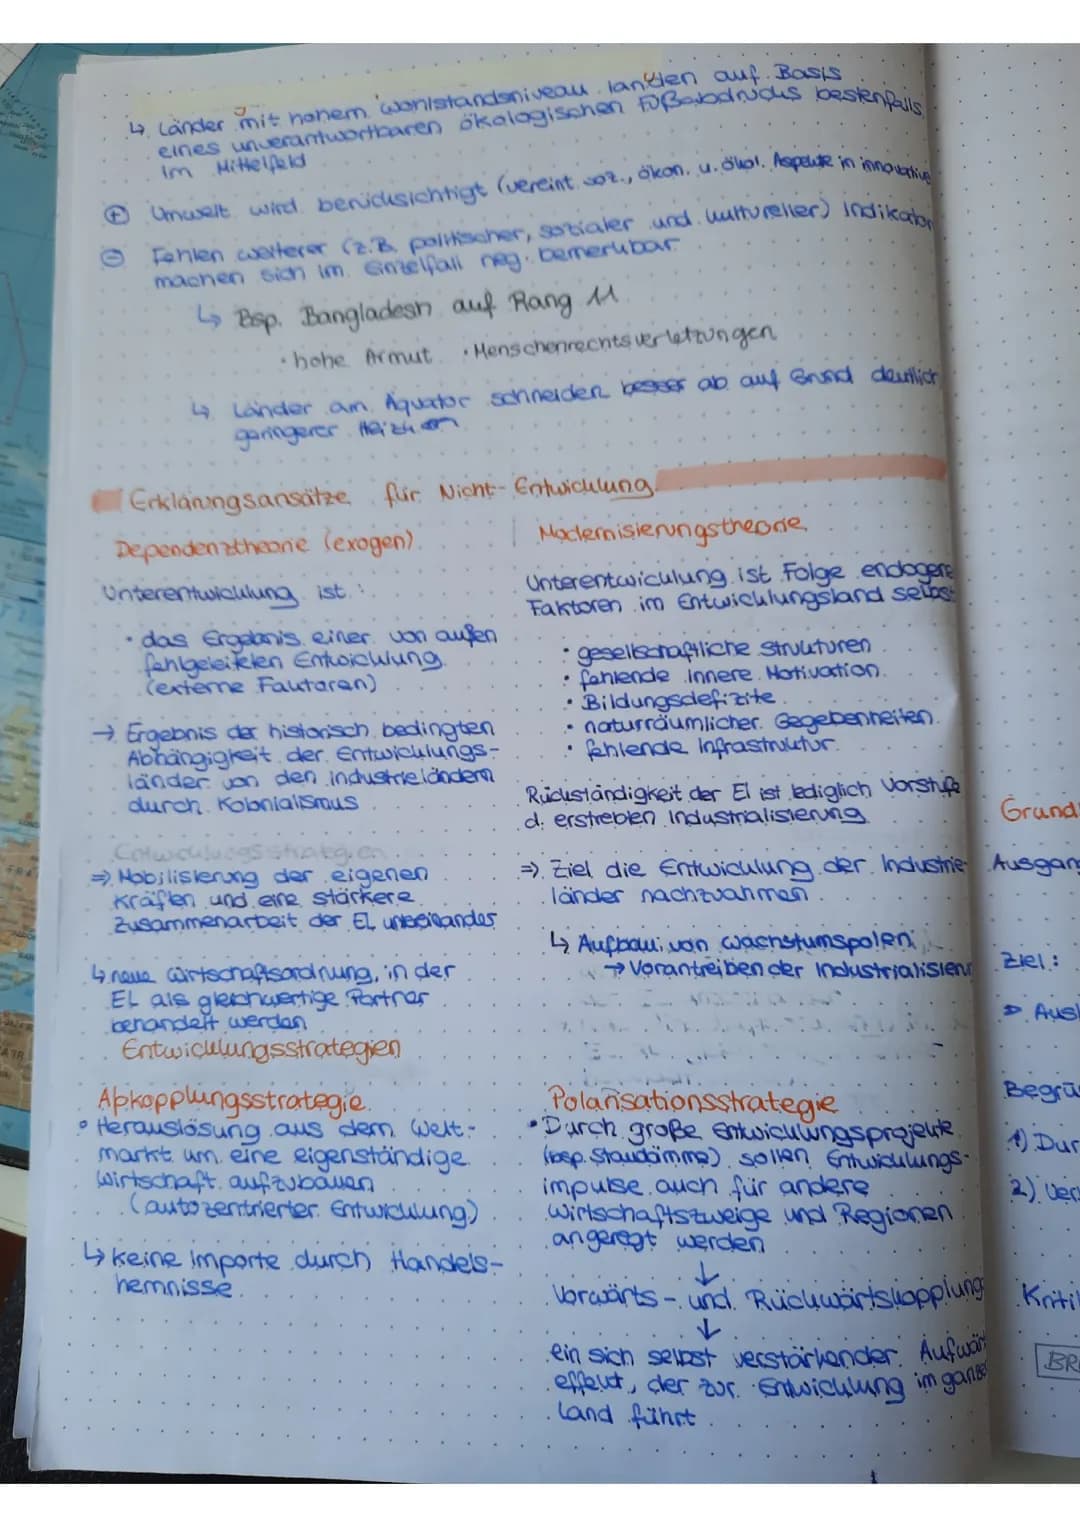 ↳ Länder mit hohem Wohlstandsniveau landen auf Basis
eines unverantwortbaren ökologischen Fußabdrucks bestenfalls
im Mittelfeld
⊕ Umwelt wird berücksichtigt (vereint soz., ökon. u. ökol. Aspekte in innovative
⊖ Fehlen weiterer (z.B. politischer, sozialer und kultureller) Indikator
machen sich im Einzelfall neg. bemerkbar
↳ Bsp. Bangladesh auf Rang 11
• hohe Armut • Menschenrechtsverletzungen
↳ Länder am Äquator schneiden besser ab auf Grund deutlich
geringerer
Erklärungsansätze für Nicht-Entwicklung
Dependenztheorie (exogen)
Unterentwicklung ist:
• das Ergebnis einer von außen
fehlgeleiteten Entwicklung
(externe Faktoren)
→ Ergebnis der historisch bedingten
Abhängigkeit der Entwicklungs-
länder von den Industrieländern
durch Kolonialismus
Entwicklungsstrategien
⇒ Mobilisierung der eigenen
Kräften und eine stärkere
Zusammenarbeit der EL untereinander
↳ neue Wirtschaftsordnung, in der
EL als gleichwertige Partner
behandelt werden
Modernisierungstheorie
Unterentwicklung ist Folge endogene
Faktoren im Entwicklungsland selbst
• gesellschaftliche Strukturen
• fehlende innere Motivation
• Bildungsdefizite
• naturräumlicher Gegebenheiten
• fehlende Infrastruktur
Rückständigkeit der El ist lediglich Vorstufe
d. erstrebten Industrialisierung
⇒ Ziel die Entwicklung der Industrie-
länder nachzuahmen
↳ Aufbau von Wachstumspolen
→ Vorantreiben der Industrialisieru
Entwicklungsstrategien
Abkopplungsstrategie
• Herauslösung aus dem Welt-
markt um eine eigenständige
Wirtschaft aufzubauen
(autozentrierter Entwicklung)
↳ keine Importe durch Handels-
hemnisse
Polarisationsstrategie
• Durch große Entwicklungsprojekte
(bsp. Staudämme) sollen Entwicklungs-
impulse auch für andere
Wirtschaftszweige und Regionen
angeregt werden
↓
Vorwärts- und Rückwärtskopplung
↓
ein sich selbst verstärkender Aufwär
effekt, der zur Entwicklung im ganze
Land führt
Grund
Ausgan
Ziel:
Aus
Begrü
1) Dur
2) Ver
Kriti
BR